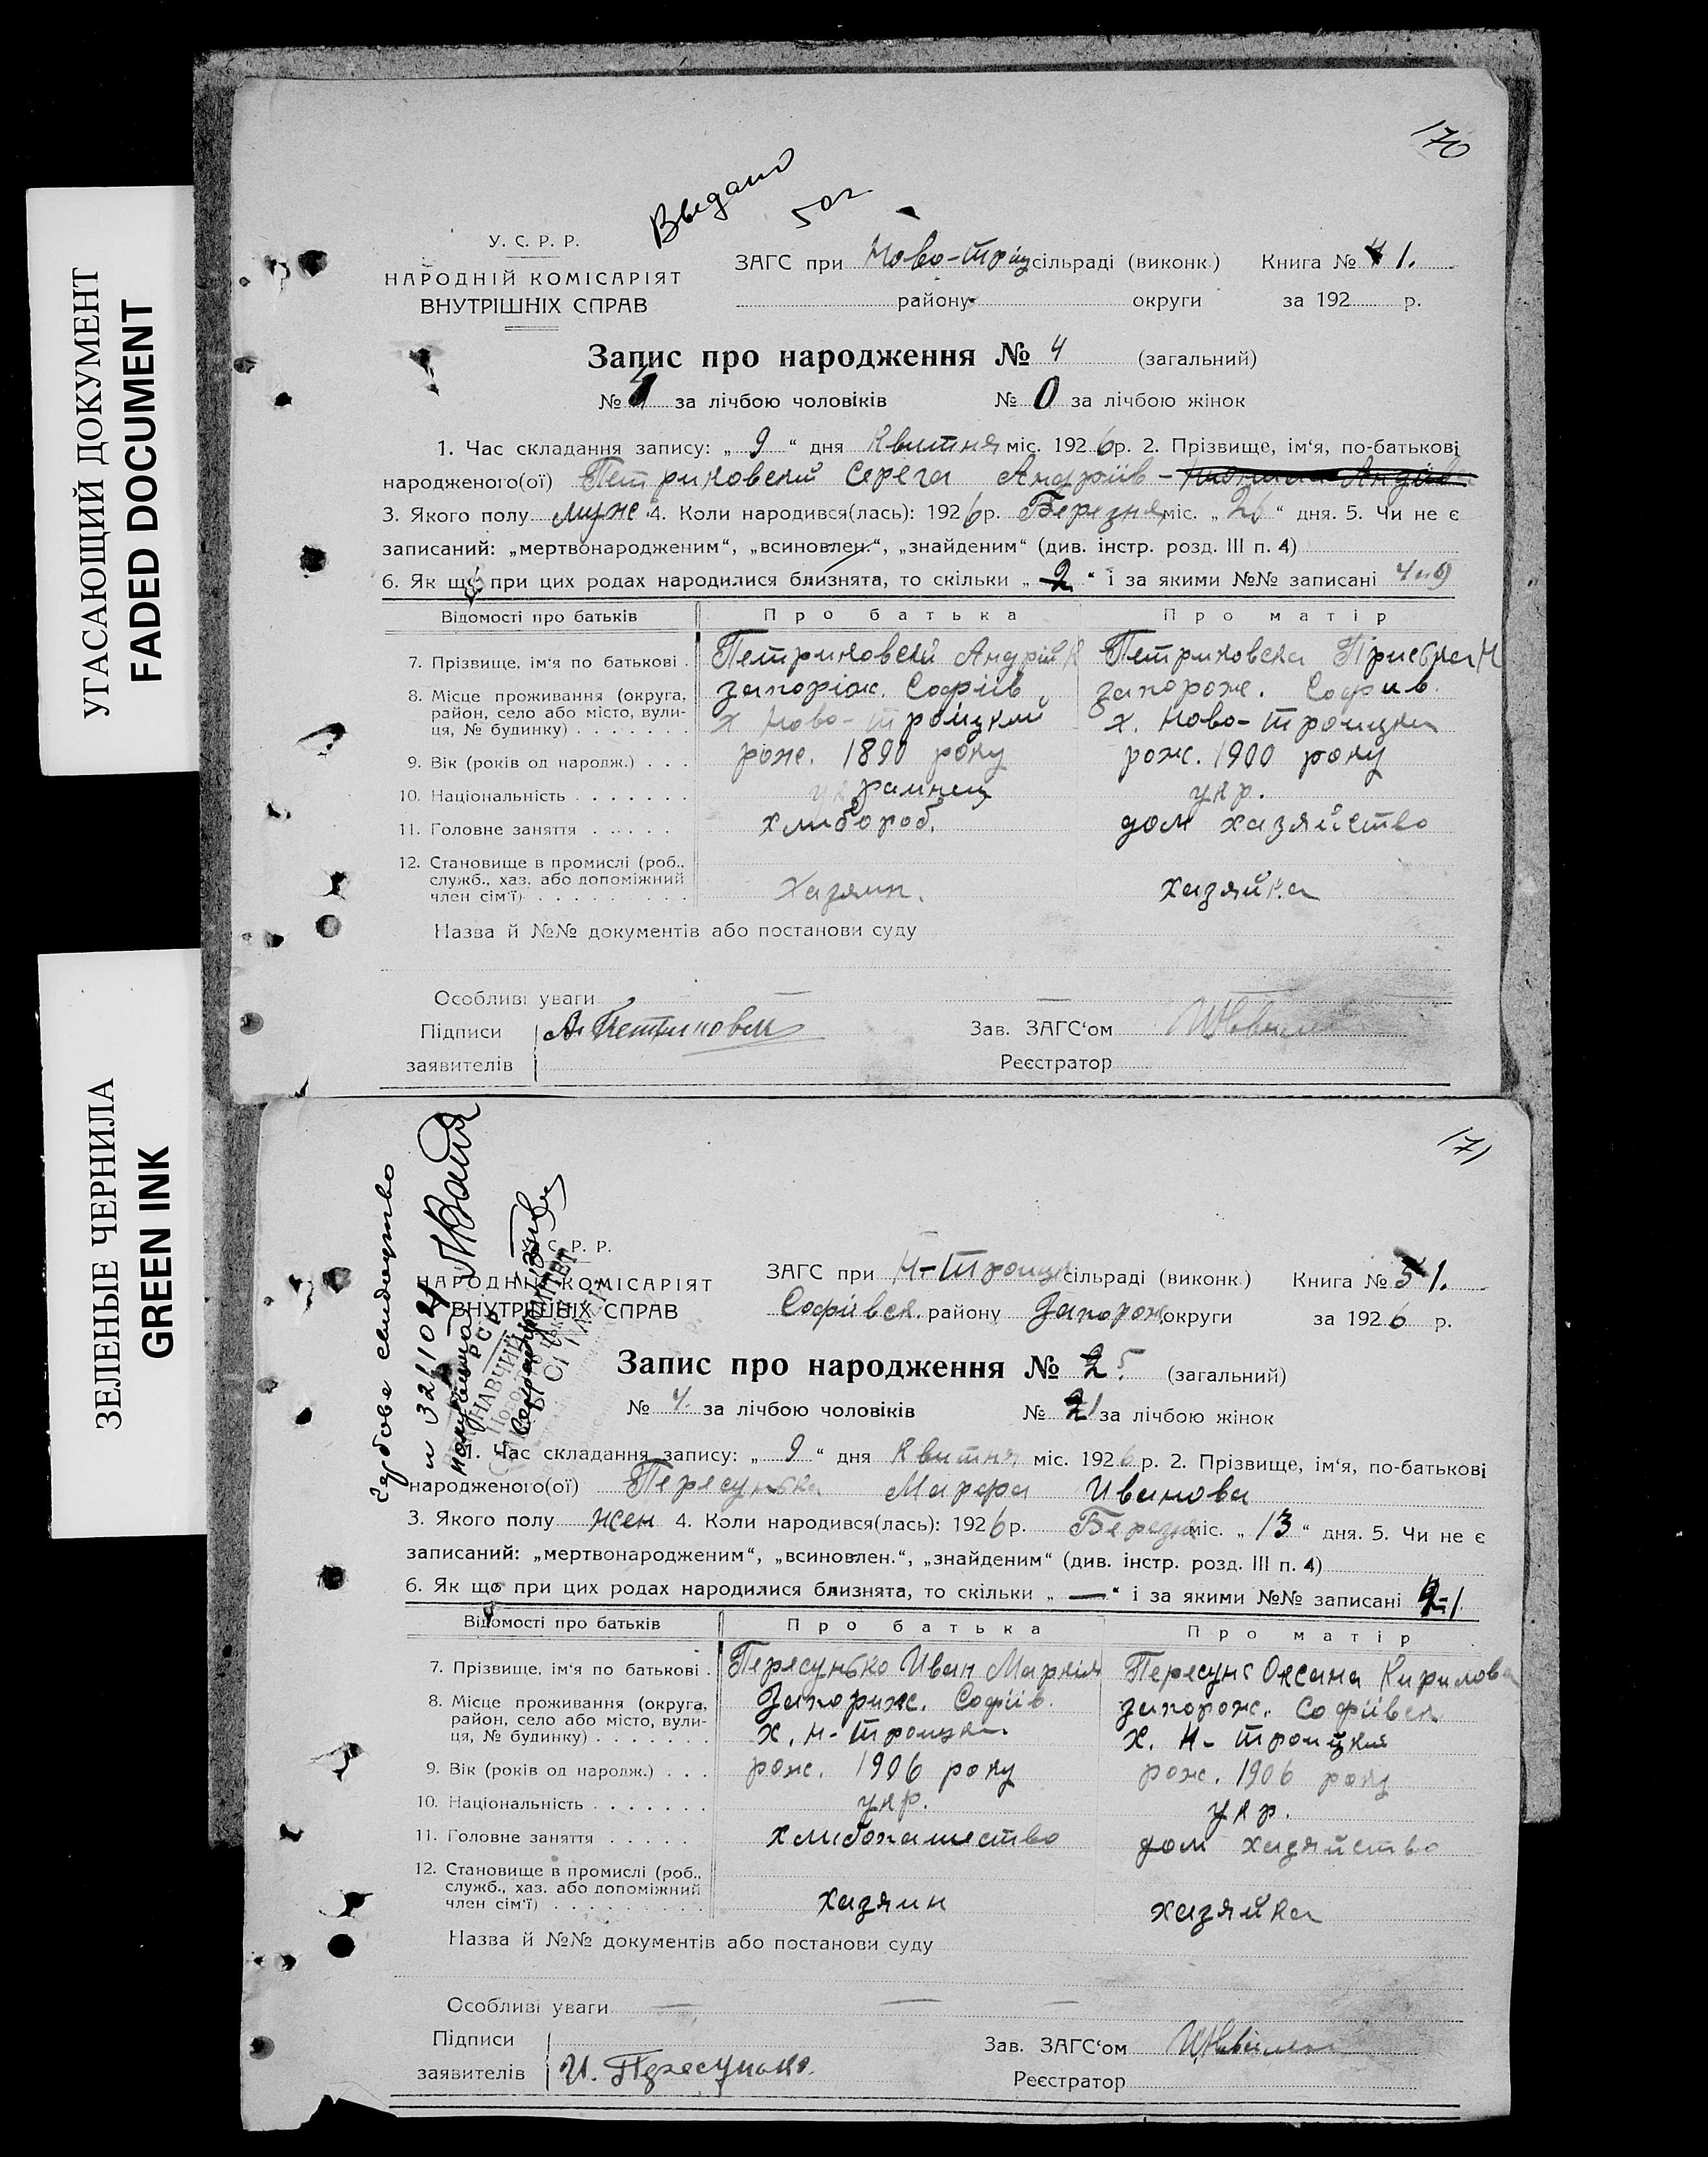 УГАСАЮЩИЙ ДОКУМЕНТ
FADED DOCUMENT
ЗЕЛЕНЫЕ ЧЕРНИЛА
GREEN INK
170
Выдано
50г
У. С. Р. Р.
НАРОДНІЙ КОМІСАРІЯТ
ВНУТРІШНІХ СПРАВ
ЗАГС при Ново-Троїц сільраді (виконк.) Книга № 1.
району округи за 192 р.
Запис про народження № 4 (загальний)
№ 4 за лічбою чоловіків № 0 за лічбою жінок
1. Час складання запису: „ 9 “ дня Квитня міс. 1926 р. 2. Прізвище, ім‘я, по-батькові
народженого(ої) Петриковский Серега Андріїв-
3. Якого полу муж. 4. Коли народився(лась): 1926 р. Березня міс. „ 26 “ дня. 5. Чи не є
записаний: „мертвонародженим“, „всиновлен.“, „знайденим“ (див. інстр. розд. III п. 4)
6. Як що при цих родах народилися близнята, то скільки „ 2 “ і за якими №№ записані
Відомості про батьків Про батька Про матір
7. Прізвище, ім‘я по батькові . Петриковский Андрій Петриковска
8. Місце проживання (округа, запоріж. Софіів запорож. Софив.
район, село або місто, вули- х Ново-Троїцкий х. Ново-Троицки
ця, № будинку) . . . . . . .
9. Вік (років од народж.) . . . рож. 1890 року рож. 1900 року
10. Національність . . . . . . . украинец укр.
11. Головне заняття . . . . . хлибороб. дом хазяйство
12. Становище в промислі (роб.,
служб., хаз. або допоміжний Хазяин. хазяйка
член сім‘ї) . . . . . . . . .
Назва й №№ документів або постанови суду
Особливі уваги — —
Підписи А. Петриковский Зав. ЗАГС‘ом
заявителів Реєстратор
171
свидоцтво
С. Р. Р.
НАРОДНІЙ КОМІСАРІЯТ
ВНУТРІШНІХ СПРАВ
ЗАГС при Н-Троицк сільраді (виконк.) Книга № 1.
Софиівск району Запорож округи за 1926 р.
Запис про народження № 5 (загальний)
№ 4 за лічбою чоловіків № 1 за лічбою жінок
1. Час складання запису: „ 9 “ дня Квитня міс. 1926 р. 2. Прізвище, ім‘я, по-батькові
народженого(ої) Пересунька Марфа Иванова
3. Якого полу жен 4. Коли народився(лась): 1926 р. Березня міс. „ 13 “ дня. 5. Чи не є
записаний: „мертвонародженим“, „всиновлен.“, „знайденим“ (див. інстр. розд. III п. 4)
6. Як що при цих родах народилися близнята, то скільки „ — “ і за якими №№ записані
Відомості про батьків Про батька Про матір
7. Прізвище, ім‘я по батькові . Пересунько Иван Маркія Пересунь Оксана Кирилова
8. Місце проживання (округа, Запориж. Софіів. запорож. Софіівск
район, село або місто, вули- х. Н-Троицки х. Н-Троицкия
ця, № будинку) . . . . . . .
9. Вік (років од народж.) . . . рож. 1906 року рож. 1906 року
10. Національність . . . . . . . укр. укр.
11. Головне заняття . . . . . хлибопашество дом хазяйство
12. Становище в промислі (роб.,
служб., хаз. або допоміжний хазяин хазяйка
член сім‘ї) . . . . . . . . .
Назва й №№ документів або постанови суду
Особливі уваги — — —
Підписи Зав. ЗАГС‘ом
заявителів И. Пересунько. Реєстратор